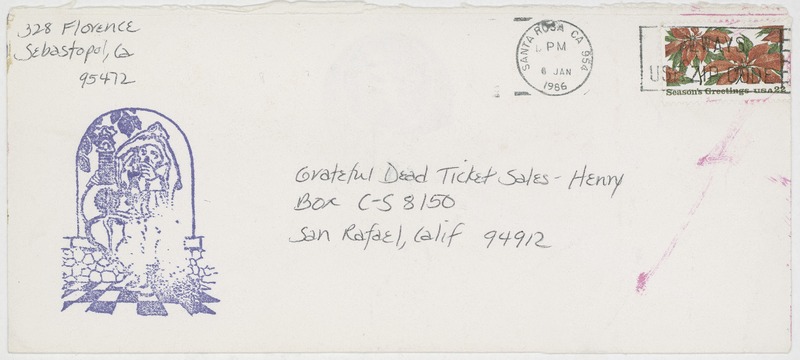 328 Florence
Sebastopol, Ca
95472
SANTA ROSA CA 954
PM
6 JAN
1986
ALWAYS
USE ZIP CODE
Season's Greetings USA22
Grateful Dead Ticket Sales - Henry
Box C-S 8150
San Rafael, Calif 94912